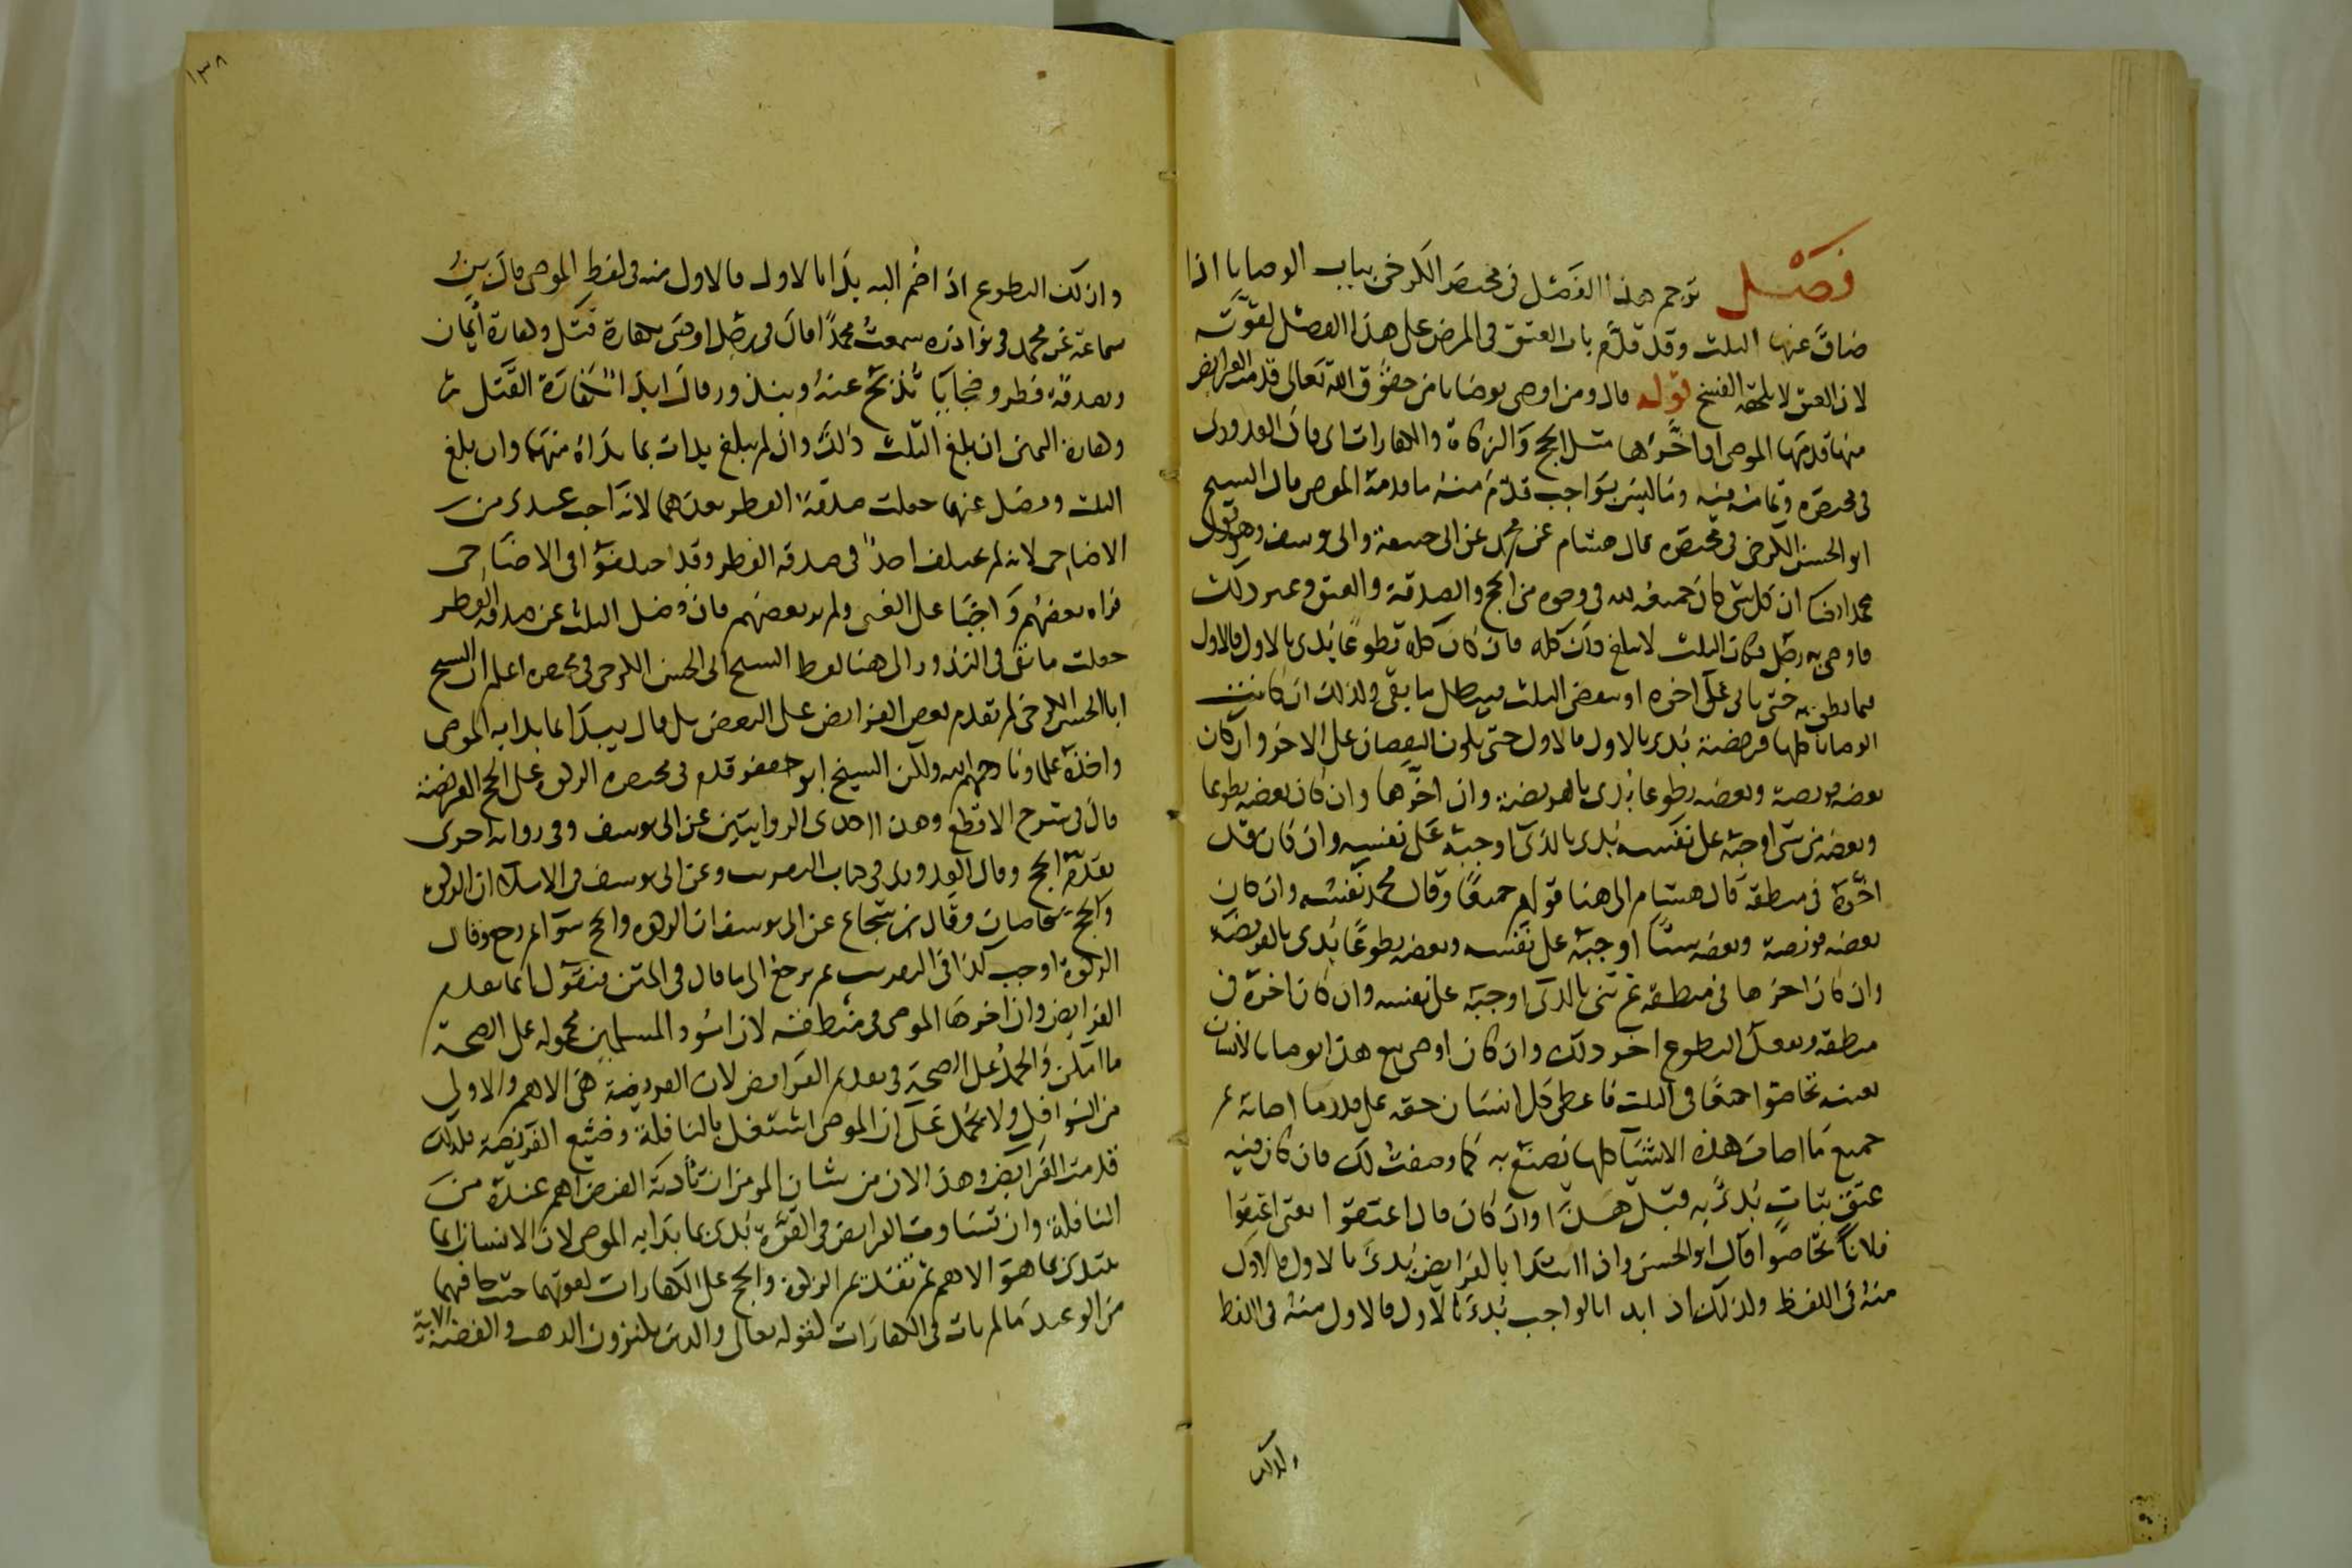 فصل ترجم هذا الفصل في مختصر الكرخي بباب الوصايا اذا
ضاق عنها الثلث وقد قدم باب العتق في المرض على هذا الفصل لقوته
لان العتق لا يلحقه الفسخ قوله قال ومن اوصى بوصايا من حقوق الله تعالى قدمت الفرايض
منها قدمها الموصى او اخرها مثل الحج والزكاة والكفارات اى قال القدورى
في مختصره وتمامه فيه وما ليس بواجب قدم منه ما قدمه الموصى قال الشيخ
ابو الحسن الكرخى في مختصره قال هشام عن محمد عن ابى حنيفة وابى يوسف وهو قول
محمد ايضا ان كل شى كان جميعه لله في وجوه من الحج والصدقة والعتق وغير ذلك
فاوصى به رجل وكان الثلث لا يبلغ ذلك كله فان كان كله تطوعا بدى بالاول فالاول
مما نطق به حتى ياتى على اخره او ينقص الثلث فيبطل ما بقى وكذلك ان كانت
الوصايا كلها فريضة بدى بالاول فالاول حتى يكون النقصان على الاخر وان كان
بعضه فريضة وبعضه تطوعا بدى بالفريضة وان اخرها وان كان بعضه تطوعا
وبعضه من شى اوجبه على نفسه بدى بالذى اوجبه على نفسه وان كان قد
اخره في منطقه قال هشام الى هنا قولهم جميعا وقال محمد نفسه وان كان
بعضه فريضة وبعضه شيئا اوجبه على نفسه وبعضه تطوعا بدى بالفريضة
وان كان اخرها في منطقه ثم ثنى بالذى اوجبه على نفسه وان كان اخره في
منطقه ويجعل التطوع اخر ذلك وان كان اوصى مع هذا بوصايا لانسان
بعينه تحاصوا جميعا في الثلث فاعطى كل انسان حقه على قدر ما اصابه ثم
جميع ما اصاب هذه الاشيا كلها يصنع به كما وصفت لك فان كان فيه
عتق بتات بدى به قبل هذا وان كان قال اعتقوا يعنى اعتقوا
فلانا تحاصوا قال ابو الحسن واذا ابتدا بالفرايض بدى بالاول فالاول
منه في اللفظ وكذلك اذ ابدا بالواجب بدى بالاول فالاول منه في اللفظ
وكذلك
١٣٨
وكذلك التطوع اذا ضم اليه بدا بالاول فالاول منه في لفظ الموصى قال ابن
سماعة عن محمد في نوادره سمعت محمدا قال في رجل اوصى بكفارة قتل وكفارة ايمان
وبصدقة فطر وضحايا تذبح عنه وبنذور قال ابدا بكفارة القتل ثم
وكفارة اليمين ان بلغ الثلث ذلك وان لم يبلغ بدات بما بدا به منهما وان بلغ
الثلث وفضل عنهما جعلت صدقة الفطر بعدهما لانه اجب عندى من
الاضاحى لانه لم يختلف احد في صدقة الفطر وقد اختلفوا في الاضاحى
فراه بعضهم واجبا على الغنى ولم يره بعضهم فان فضل الثلث عن صدقة الفطر
جعلت ما بقى في النذور الى هنا لفظ الشيخ ابى الحسن الكرخى في مختصره اعلم ان الشيخ
ابا الحسن الكرخى لم يقدم بعض الفرايض على البعض بل قال يبدا بما بدا به الموصى
واخذه علماونا رحمهم الله ولكن الشيخ ابو جعفر قدم في مختصره الزكوة على الحج الفريضة
قال في شرح الاقطع وهذه احدى الروايتين عن ابى يوسف وفى رواية اخرى
يقدم الحج وقال القدورى في كتاب التقريب وعن ابى يوسف في الاملا ان الزكوة
والحج يتحاصان وقال ابن شجاع عن ابى يوسف ان الزكوة والحج سوا ثم رجع وقال
الزكوة اوجب كذا في التقريب ثم نرجع الى ما قال في المتن فنقول انما يقدم
الفرايض وان اخرها الموصى في منطقه لان امور المسلمين محمولة على الصحة
ما امكن والحمل على الصحة في تقديم الفرايض لان الفريضة هى الاهم والاولى
من النوافل ولا يحمل على ان الموصى اشتغل بالنافلة وضيع الفريضة فلذلك
قدمت الفرايض وهذا لان من شان المومن ان تادية الفرض اهم عنده من
النافلة وان تساوت الفرايض في القوة بدى بما بدا به الموصى لان الانسان انما
يبتدى بما هو الاهم ثم تقديم الزكوة والحج على الكفارات لقوتهما حتى جا فيهما
من الوعيد ما لم يات في الكفارات لقوله تعالى والذين يكنزون الذهب والفضة الاية